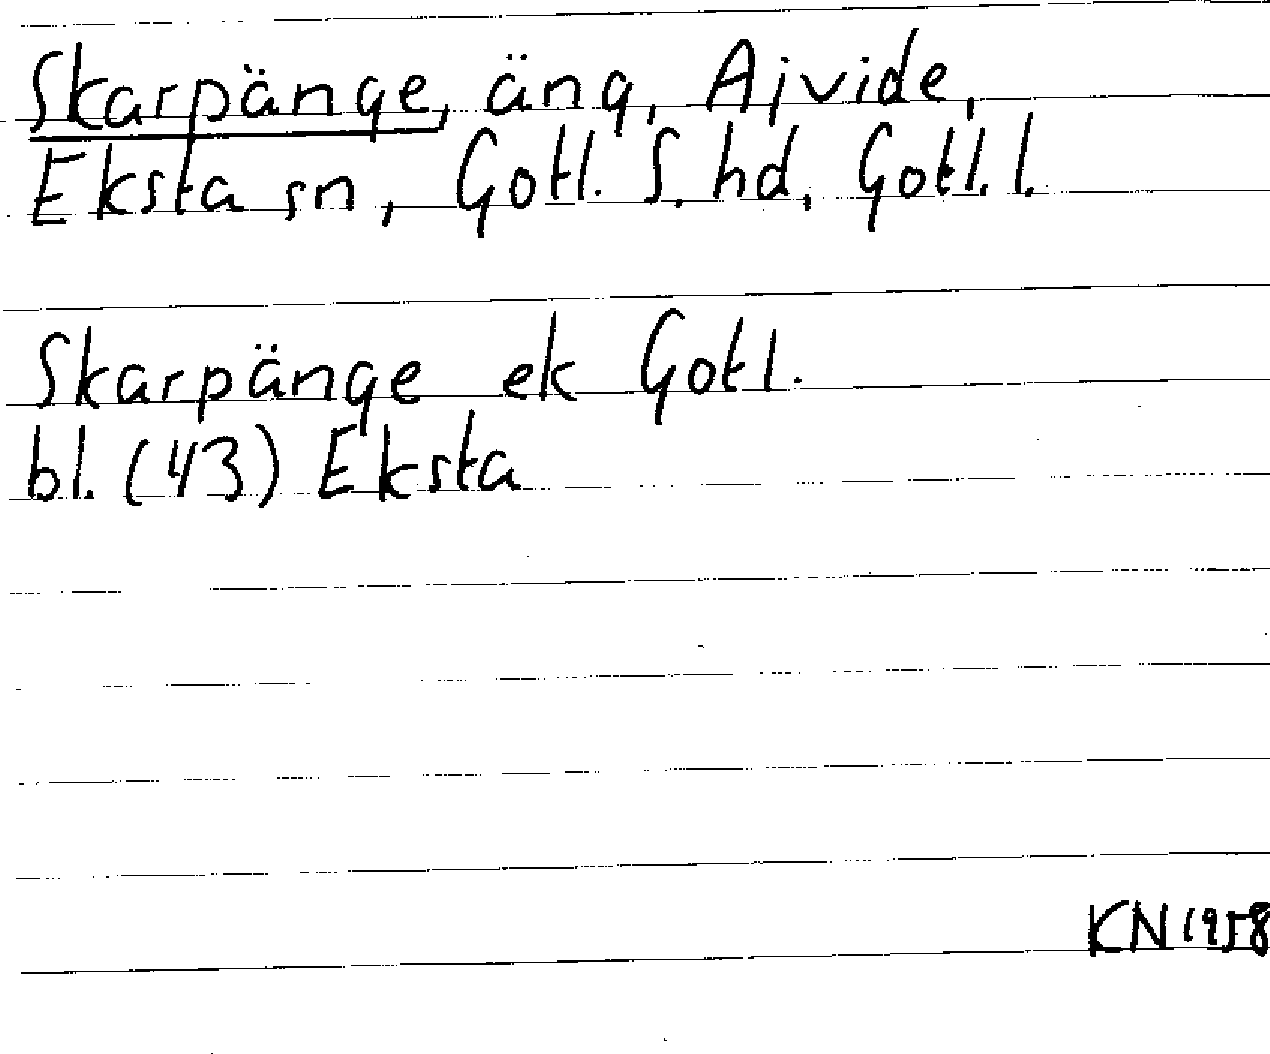 Skarpänge, äng, Ajvide,
Eksta sn, Gotl. S. hd, Gotl. l.
Skarpänge ek Gotl.
bl. (43) Eksta
KN 1958